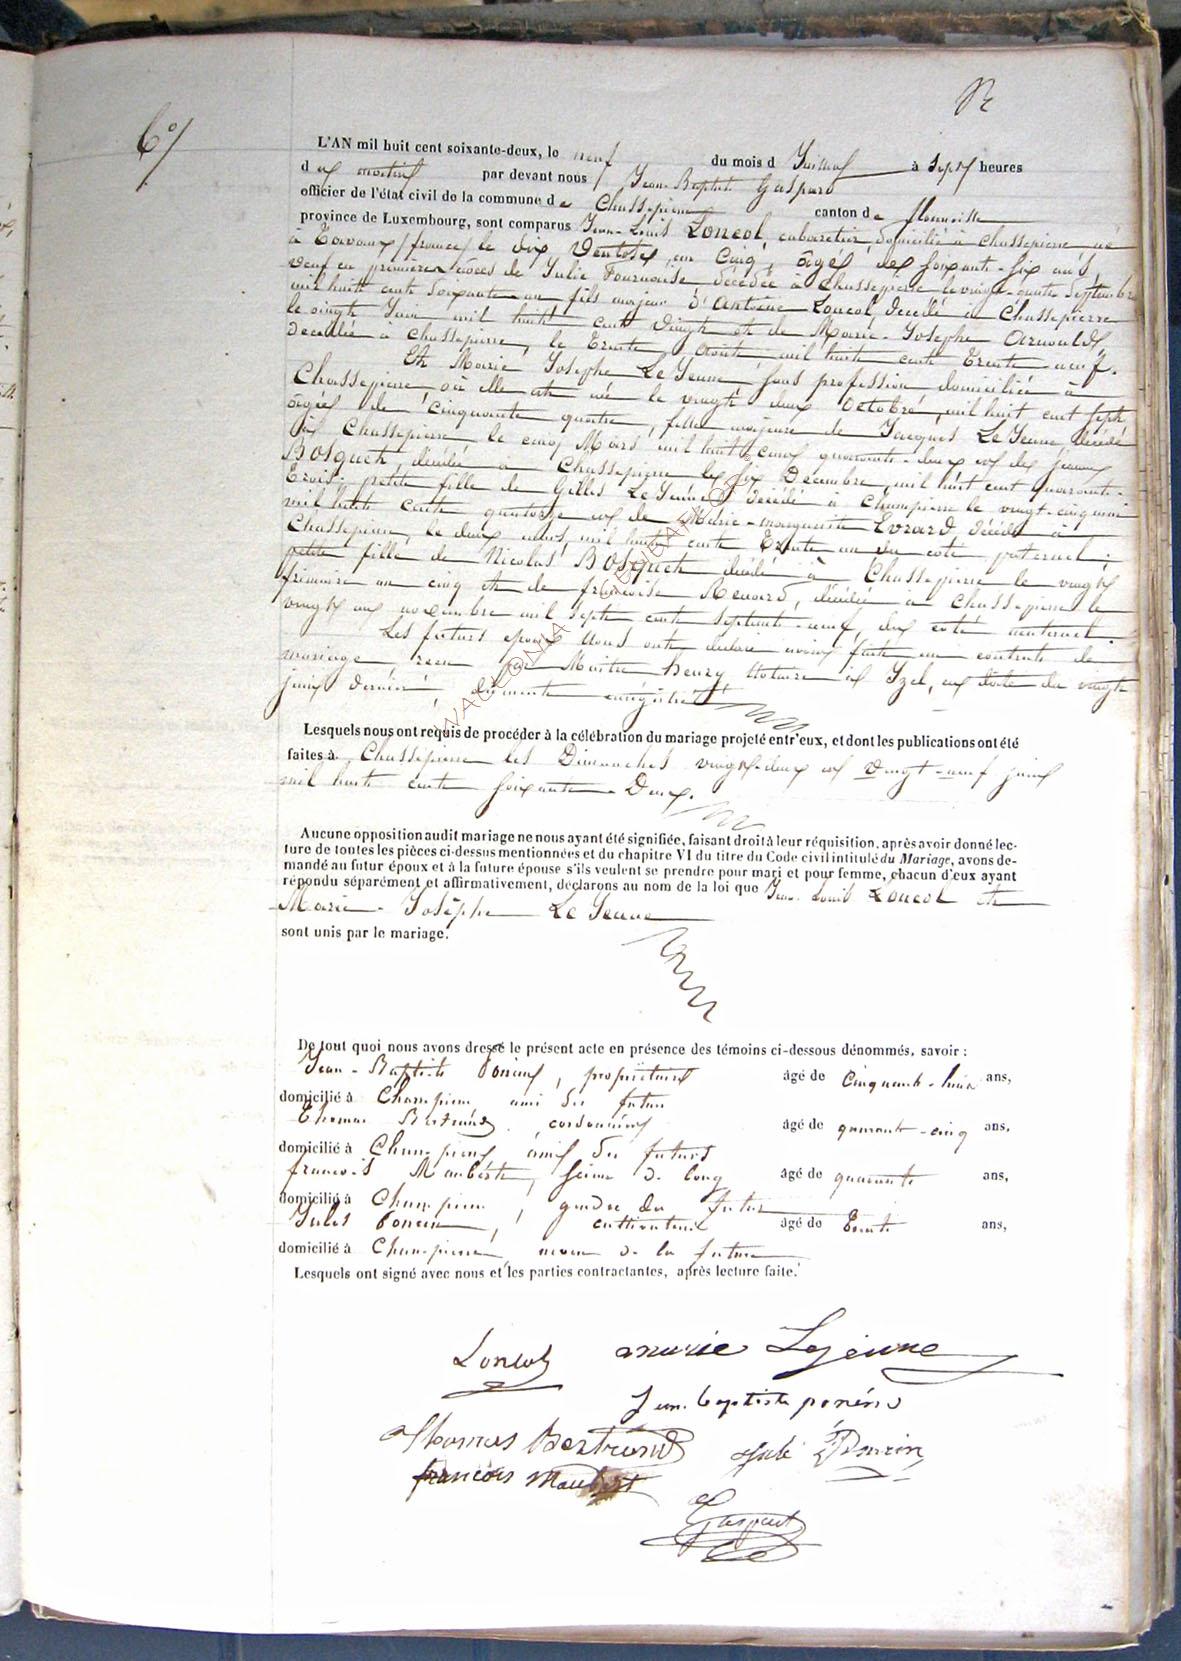 6°/
L'AN mil huit cent soixante-deux, le neuf du mois d Juillet à Sept heures
d u matin par devant nous Jean-Baptiste Gaspard
officier de l'état civil de la commune d e Chassepierre canton d e florenville
province de Luxembourg, sont comparus Jean-Louis Loncol, cabaretier, domicilié à Chassepierre né
à (france) le dix Ventose, an Cinq, âgé de soixante-six ans,
veuf en premières noces de Julie Fournaise, décédée à Chassepierre le vingt-quatre Septembre
mil huit cent soixante-un fils majeur d'Antoine Loncol, décédé à Chassepierre
le vingt Juin mil huit cent vingt et de Marie-Josephe Arnould
décédée à Chassepierre, le Trente Août mil huit cent Trente-neuf.
Et Marie Josephe Le Jeune sans profession domiciliée à
Chassepierre où elle est née le vingt deux Octobre, mil huit cent sept,
âgée de cinquante quatre, fille majeure de Jacques Le Jeune décédé
à Chassepierre le cinq Mars mil huit cent quarante-deux et de jeanne
Bosquet, décédée à Chassepierre le six Décembre, mil huit cent quarante-
trois; petite fille de Gilles Le Jeune décédé à Chassepierre le vingt-cinq
mil huit cent quatorze et de Marie-marguerite Evrard, décédée à
Chassepierre, le deux mars, mil huit cent Trente un du coté paternel;
petite fille de Nicolas Bosquet décédé à Chassepierre le vingt
frimaire an cinq et de françoise Renard, décédée à Chassepierre le
vingt novembre mil sept cent septante-neuf, du coté maternel.
Les futurs epoux nous ont déclaré avoir fait un contrat de
mariage, reçu par Maitre henry Notaire à Izel, en date du vingt
juin dernier, dûment enregistré
Lesquels nous ont requis de procéder à la célébration du mariage projeté entr'eux, et dont les publications ont été
faites à Chassepierre les Dimanches vingt-deux et vingt-neuf juin
mil huit cent soixante-Deux.
Aucune opposition audit mariage ne nous ayant été signifiée, faisant droit à leur réquisition, après avoir donné lec-
ture de toutes les pièces ci-dessus mentionnées et du chapitre VI du titre du Code civil intitulé du Mariage, avons de-
mandé au futur époux et à la future épouse s'ils veulent se prendre pour mari et pour femme, chacun d'eux ayant
répondu séparément et affirmativement, déclarons au nom de la loi que Jean-Louis Loncol et
Marie-Josèphe Le Jeune
sont unis par le mariage.
De tout quoi nous avons dressé le présent acte en présence des témoins ci-dessous dénommés, savoir :
Jean-Baptiste Poncin, propriétaire âgé de Cinquante-huit ans,
domicilié à Chassepierre ami du futur
Thomas Bertrand, cordonnier âgé de quarante-cinq ans,
domicilié à Chassepierre ami du futur
francois Maubert, scieur de long âgé de quarante ans,
domicilié à Chassepierre, gendre du futur
Jules Poncin, cultivateur âgé de Trente ans,
domicilié à Chassepierre, neveu de la future
Lesquels ont signé avec nous et les parties contractantes, après lecture faite.
Loncol marie Lejeune
Jean-baptiste poncin
Thomas Bertrand Jules Poncin
francois Maubert
Gaspard